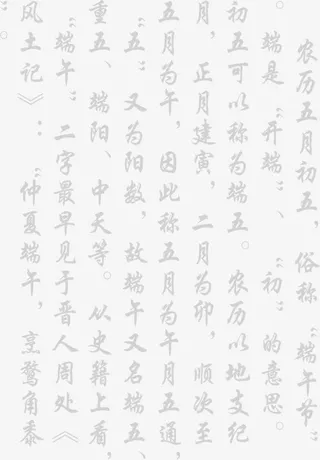 农历五月初五，俗称“端午节”
。端是“开端”、“初”的意思。
初五可以称为端五。农历以地支纪
月，正月建寅，二月为卯，顺次至
五月为午，因此称五月为午月五通，
“五”又为阳数，故端午又名端五、
重五、端阳、中天等。从史籍上看，
“端午”二字最早见于晋人周处《
风土记》：“仲夏端午，烹鹜角黍
”。